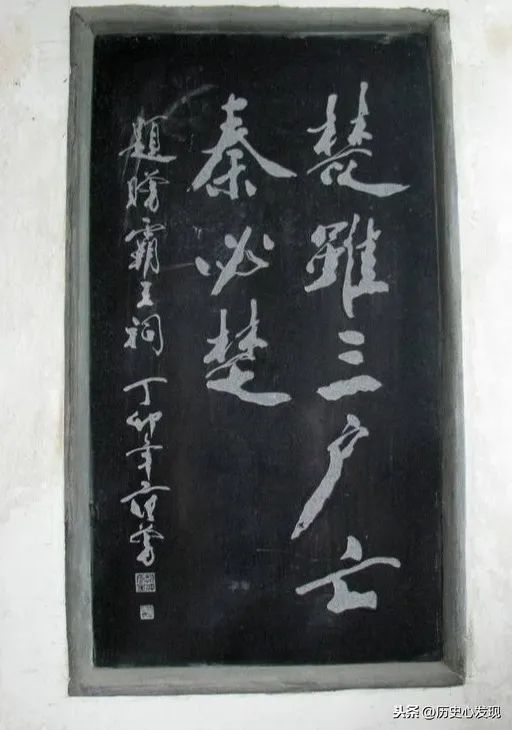 楚雖三户亡
秦必楚
題贈霸王祠 丁卯年
头条 @历史心发现